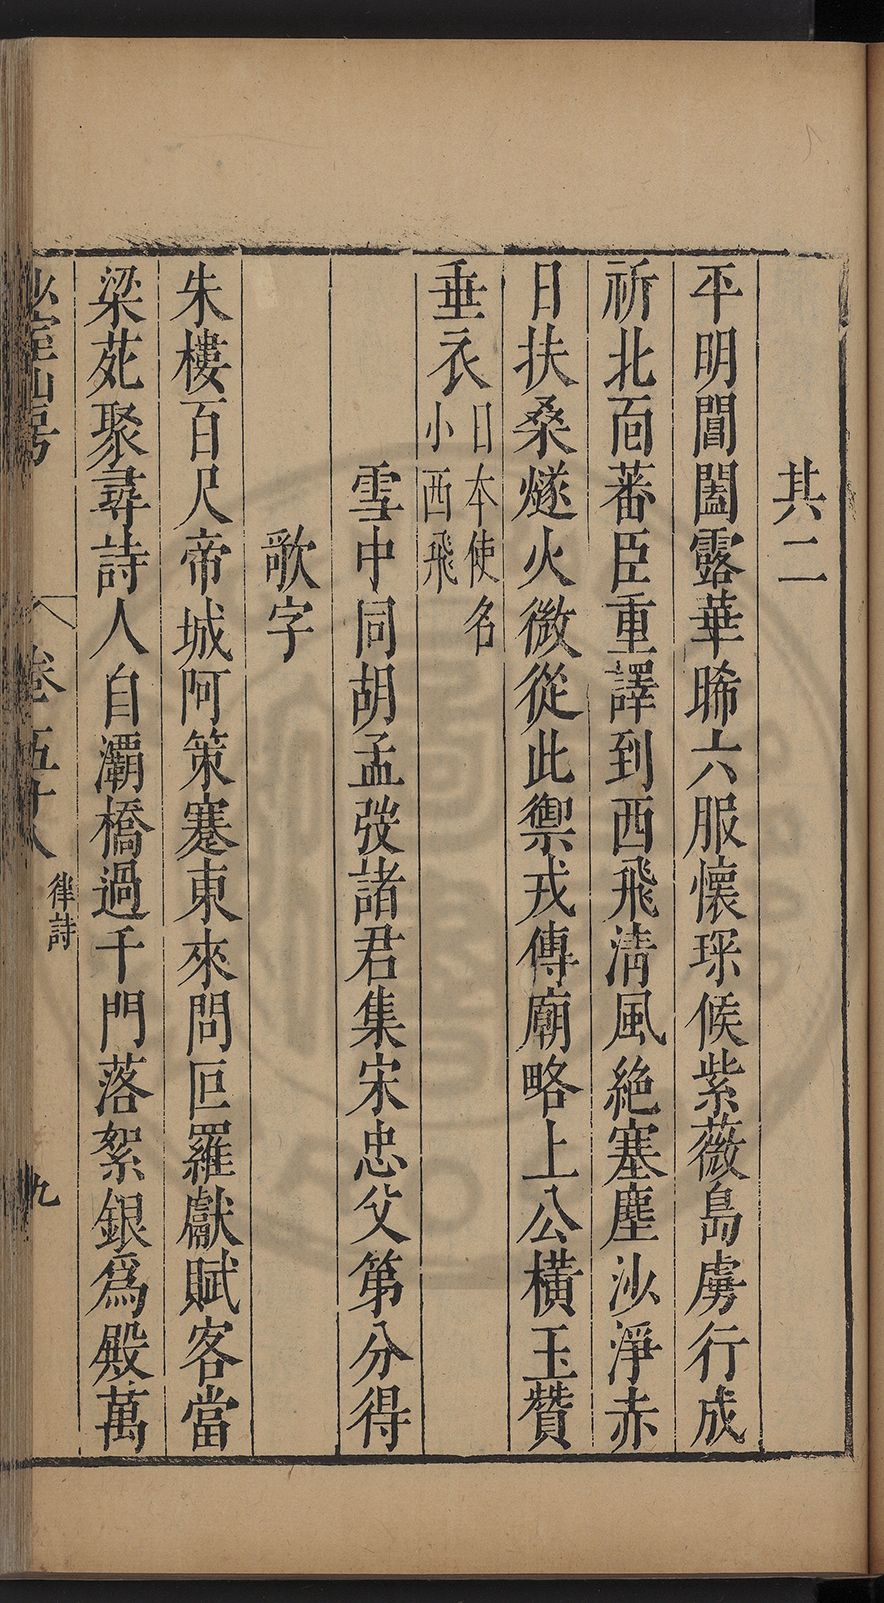 其二
平明閶闔露華晞六服懷琛候紫薇島虜行成
祈北面蕃臣重譯到西飛清風絕塞塵沙淨赤
日扶桑燧火微從此禦戎傳廟略上公橫玉贊
垂衣日本使名小西飛
雪中同胡孟弢諸君集宋忠父第分得
歌字
朱樓百尺帝城阿策蹇東來問叵羅獻賦客當
梁苑聚尋詩人自灞橋過千門落絮銀爲殿萬
少室山房
卷五十八
律詩
九